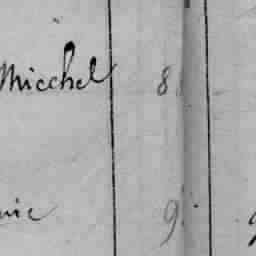 Micchel 8
nie 9